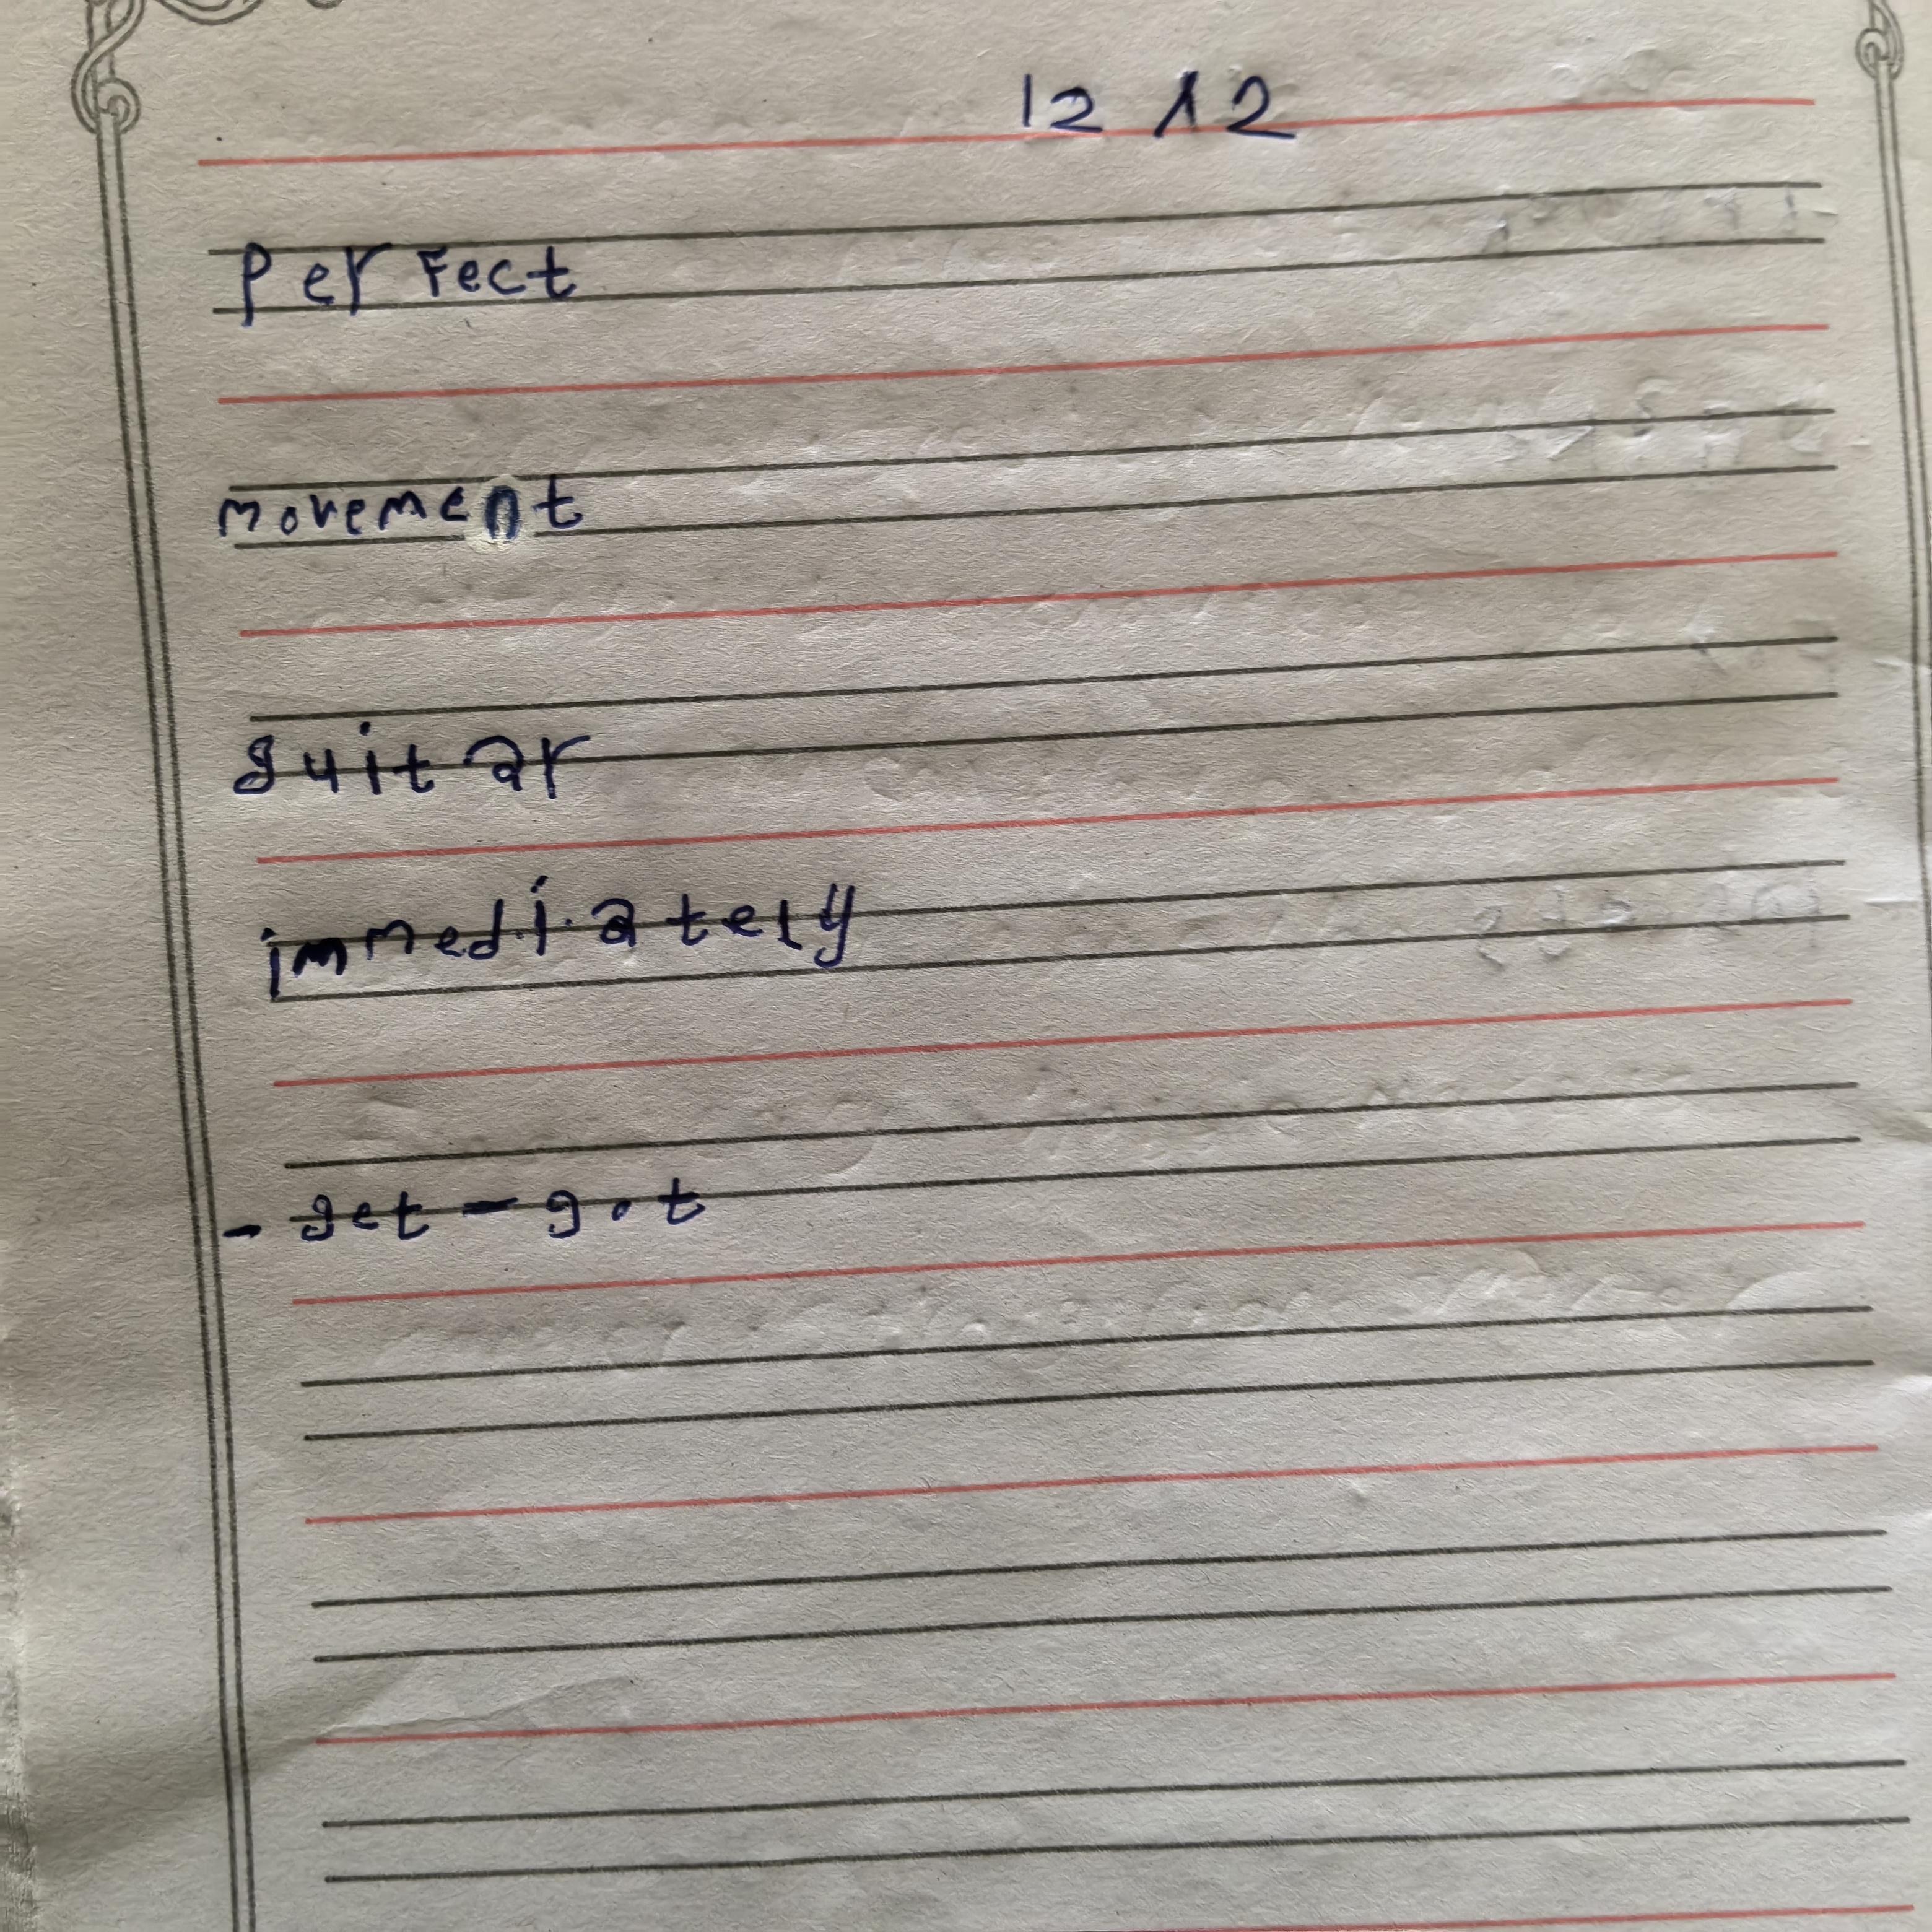 12 12
perfect
movement
guitar
immediately
- get - got